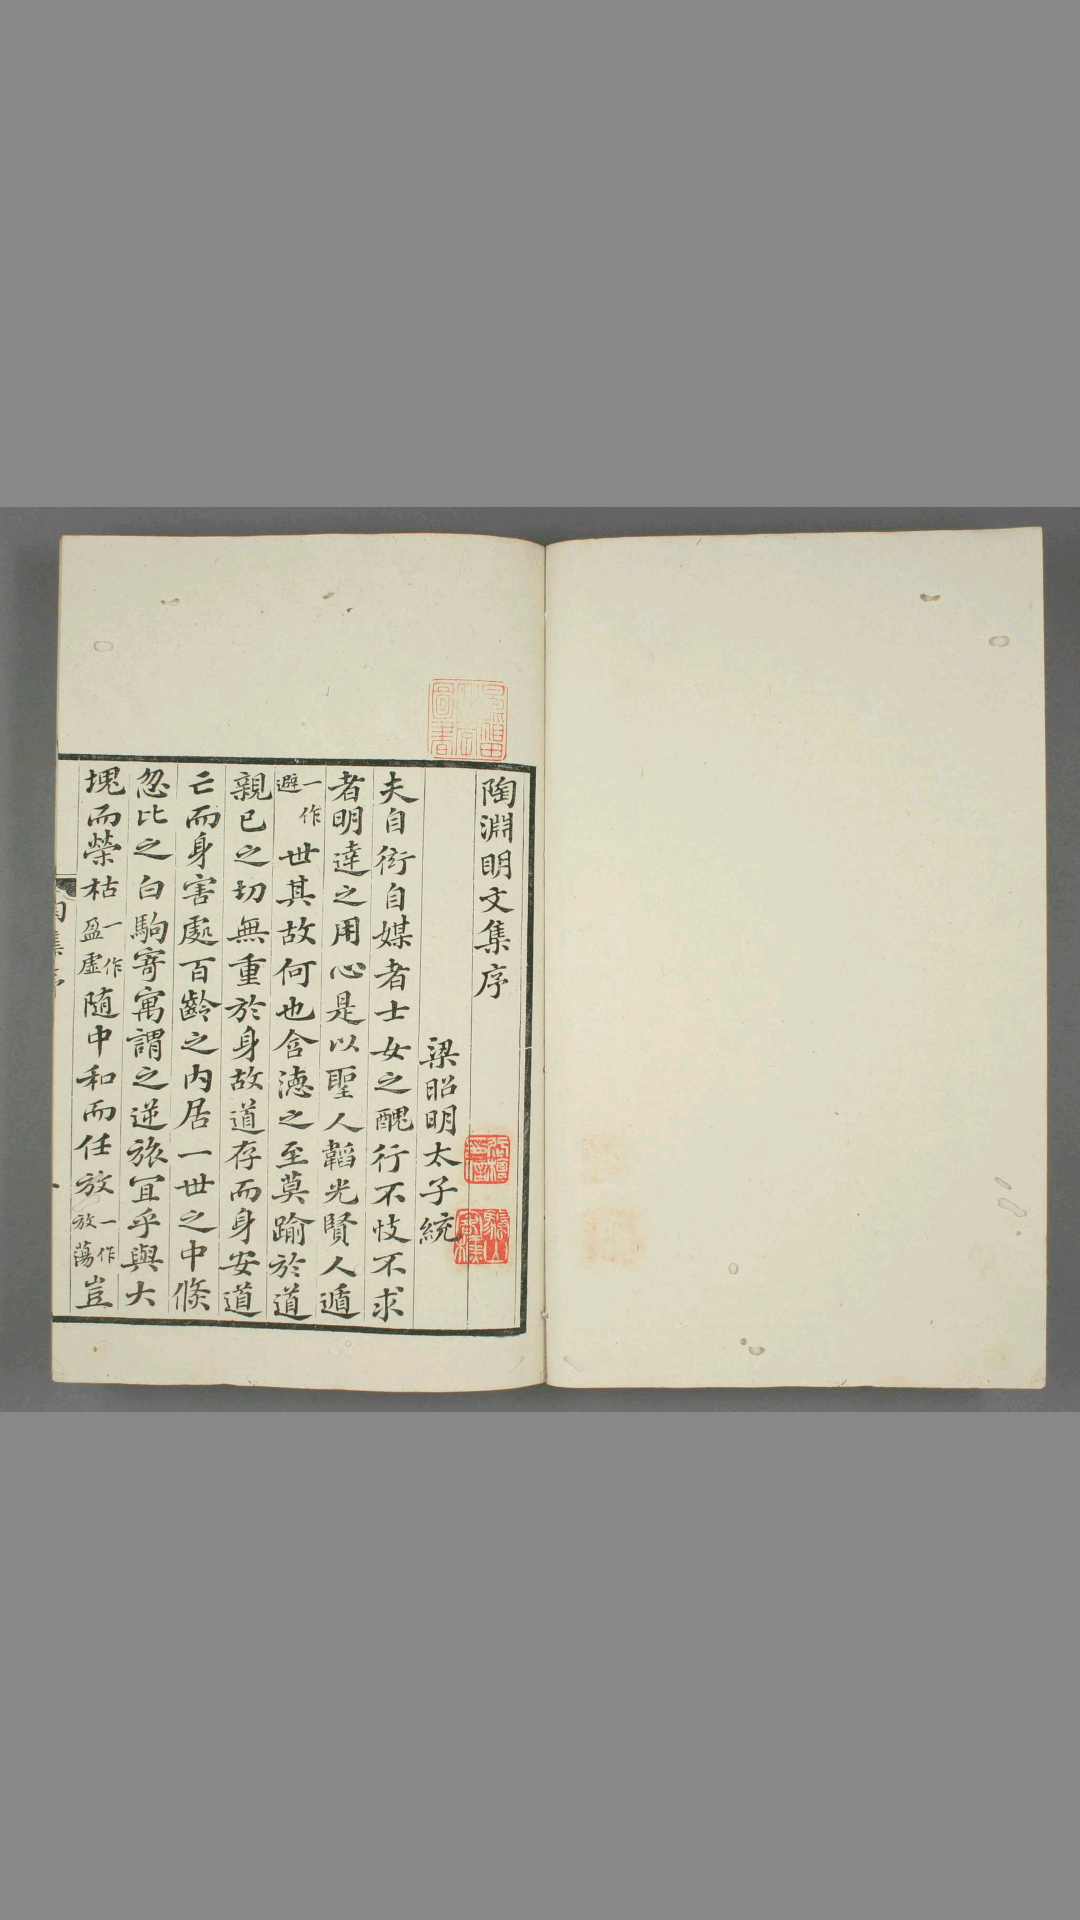 陶淵明文集序
梁昭明太子統
夫自衒自媒者士女之醜行不忮不求
者明達之用心是以聖人韜光賢人遁
一作避世其故何也含德之至莫踰於道
親已之切無重於身故道存而身安道
亡而身害處百齡之內居一世之中倐
忽比之白駒寄寓謂之逆旅冝乎與大
塊而榮枯一作盈虛隨中和而任放一作放蕩豈
圖書